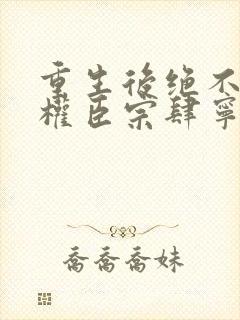 重生後绝不
權臣宗肆寧
喬喬喬妹